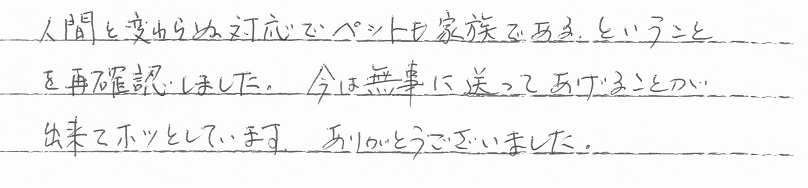 人間と変わらぬ対応でペットも家族である、ということ
を再確認しました。今は無事に送ってあげることが
出来てホッとしています。ありがとうございました。